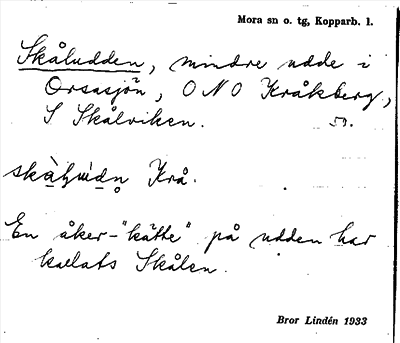 Mora sn o. tg, Kopparb. l.
Skåludden, mindre udde i
Orsasjön, ONO Kråkberg,
S Skålviken. 53.
Krå.
En åker-"kätte" på udden har
kallats Skålen.
Bror Lindén 1933